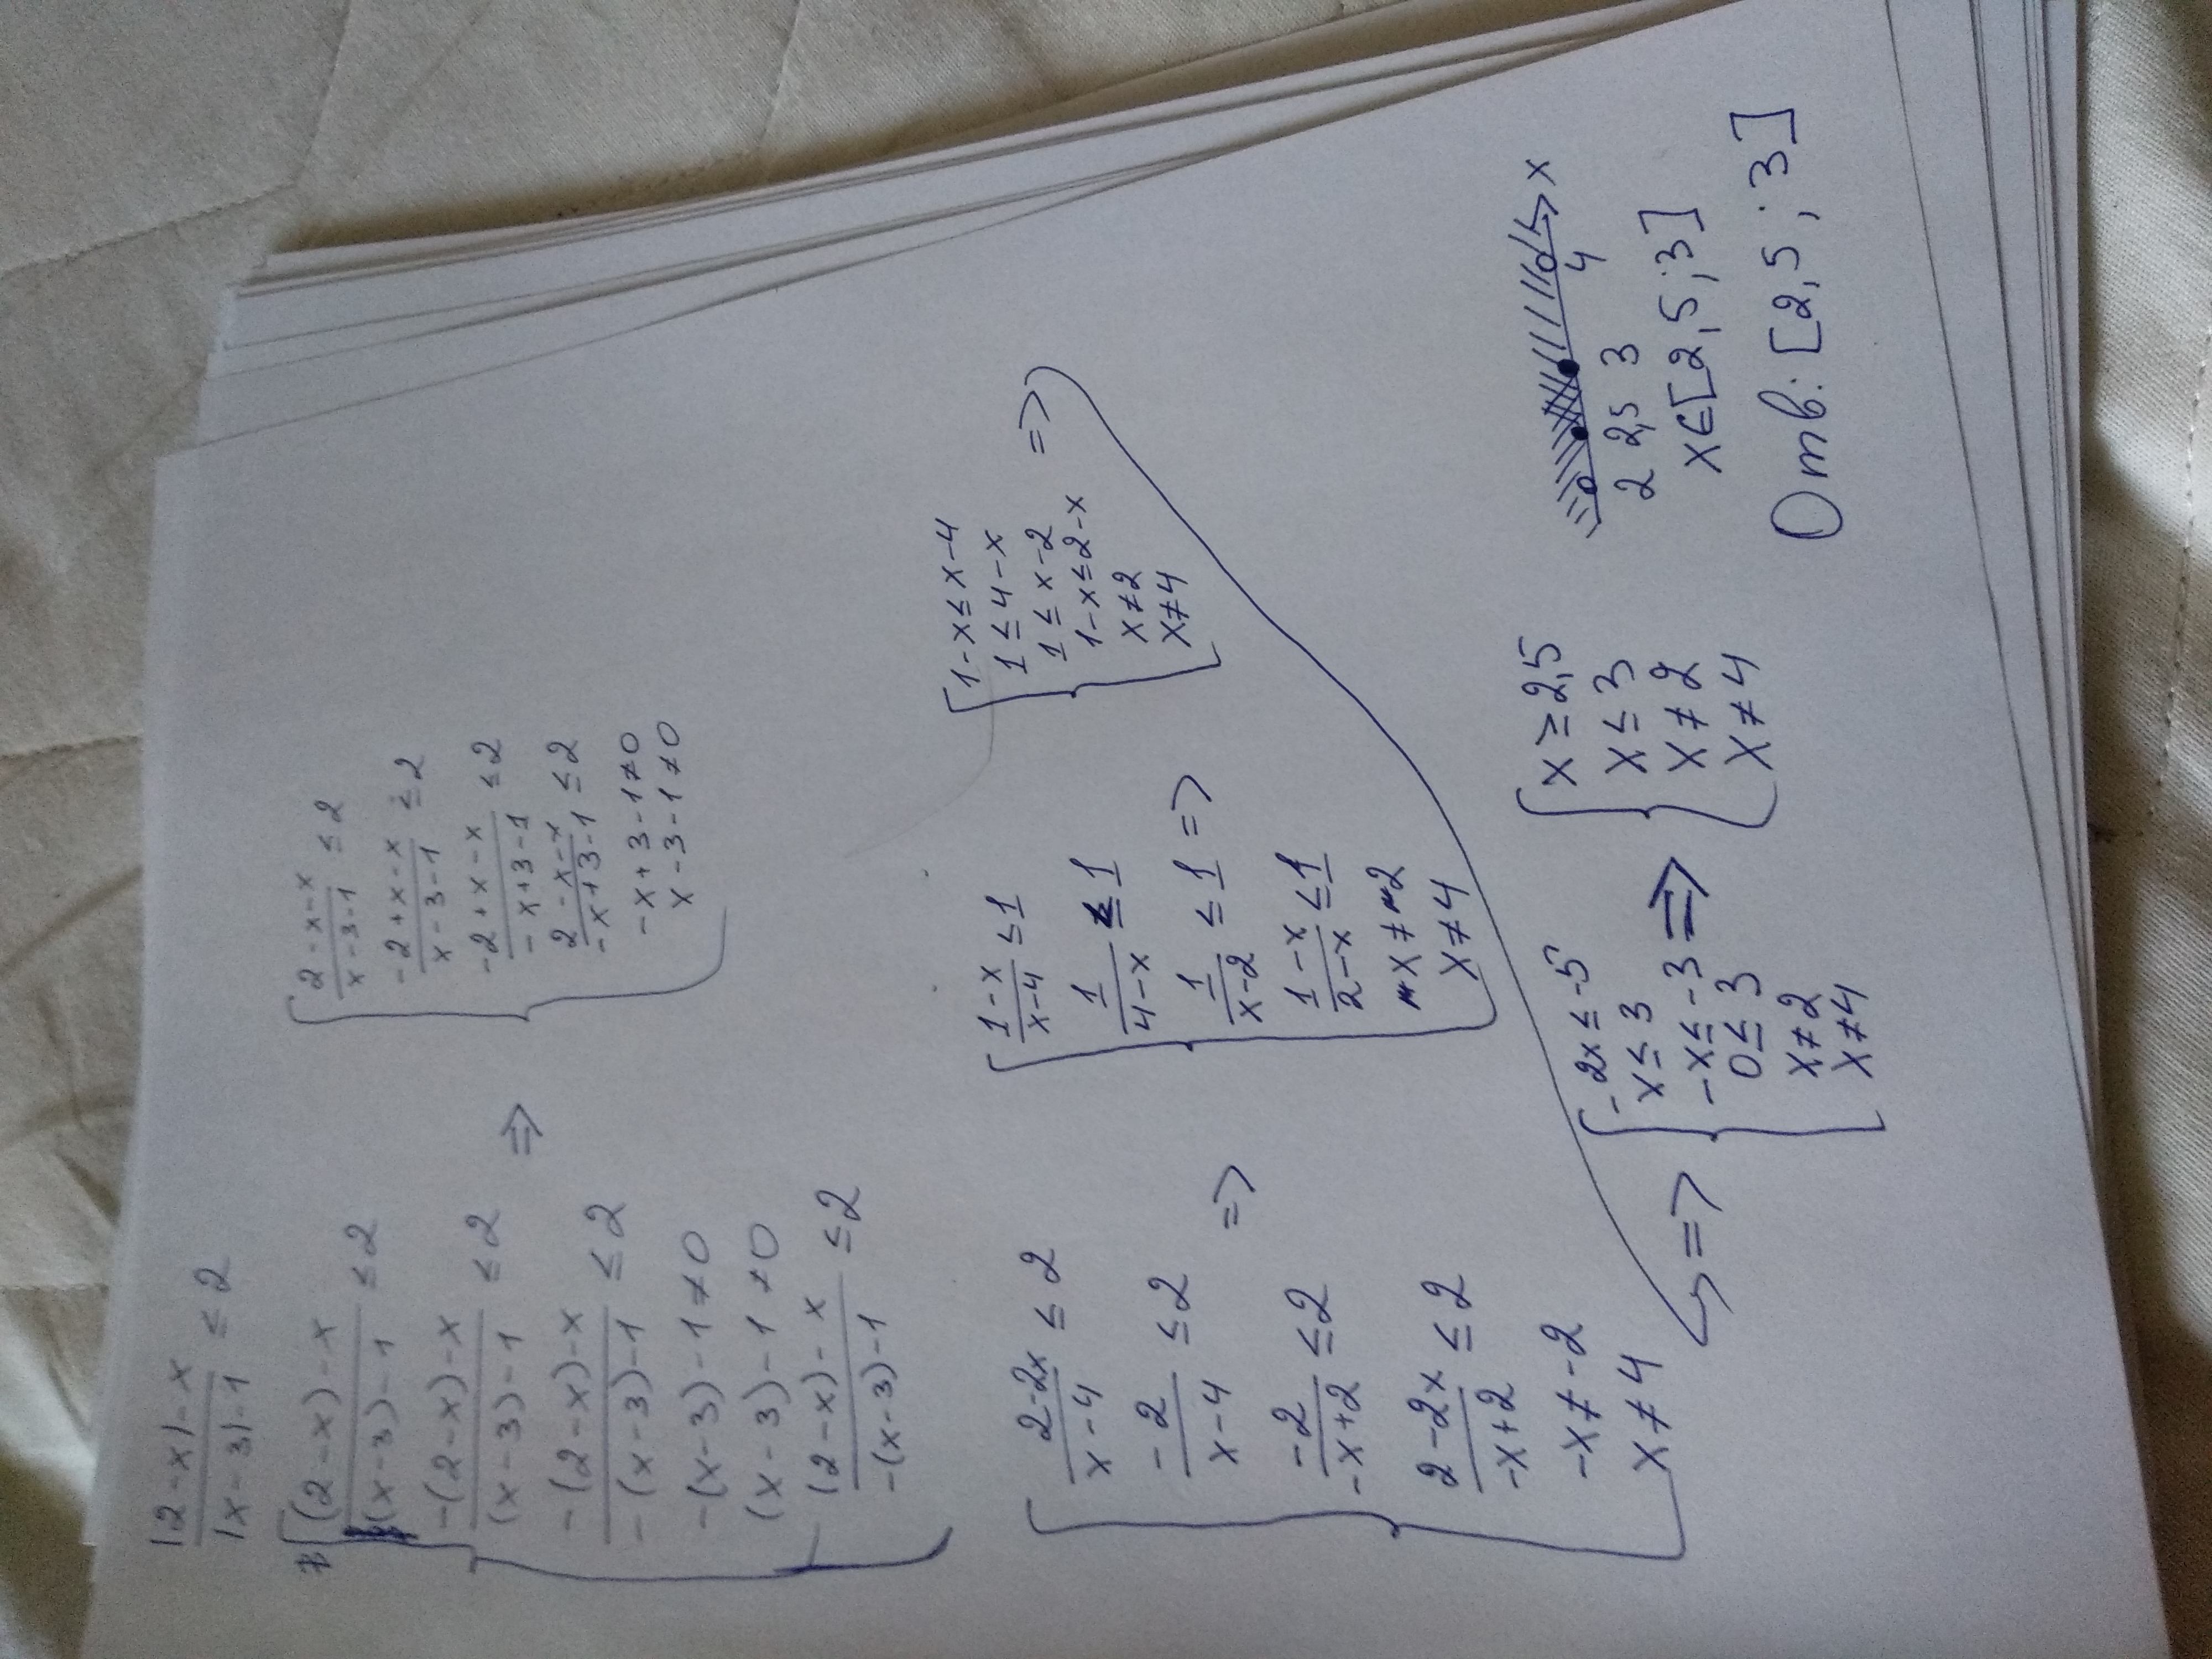 |2-x|-x / |x-3|-1 ≤ 2
(2-x)-x / (x-3)-1 ≤ 2
-(2-x)-x / (x-3)-1 ≤ 2
-(2-x)-x / -(x-3)-1 ≤ 2
-(x-3)-1≠0
(x-3)-1≠0
(2-x)-x / -(x-3)-1 ≤ 2
=>
2-x-x / x-3-1 ≤ 2
-2+x-x / x-3-1 ≤ 2
-2+x-x / -x+3-1 ≤ 2
2-x-x / -x+3-1 ≤ 2
-x+3-1≠0
x-3-1≠0
2-2x / x-4 ≤ 2
-2 / x-4 ≤ 2
-2 / -x+2 ≤ 2
2-2x / -x+2 ≤ 2
-x≠-2
x≠4
=>
1-x / x-4 ≤ 1
1 / 4-x ≤ 1
1 / x-2 ≤ 1 =>
1-x / 2-x ≤ 1
x≠2
x≠4
1-x≤x-4
1≤4-x
1≤x-2
1-x≤2-x
x≠2
x≠4
=>
=>
-2x≤-5
x≤3
-x≤-3 =>
0≤3
x≠2
x≠4
x≥2,5
x≤3
x≠2
x≠4
x
2 2,5 3 4
x∈[2,5;3]
Отв: [2,5;3]